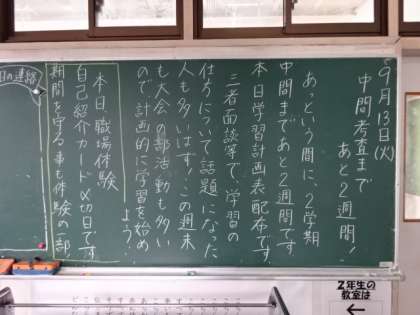 9月13日(火)
中間考査まで
あと2週間!
あっという間に、2学期
中間まであと2週間です。
本日学習計画表配布です。
三者面談等で、学習の
仕方について話題になった
人も多いはず!この週末
も大会の部活動も多い
ので計画的に学習を始め
よう?
本日 職場体験
自己紹介カード〆切日です
期間を守る事も体験の一部
日の連絡
2年生の
教室は
←